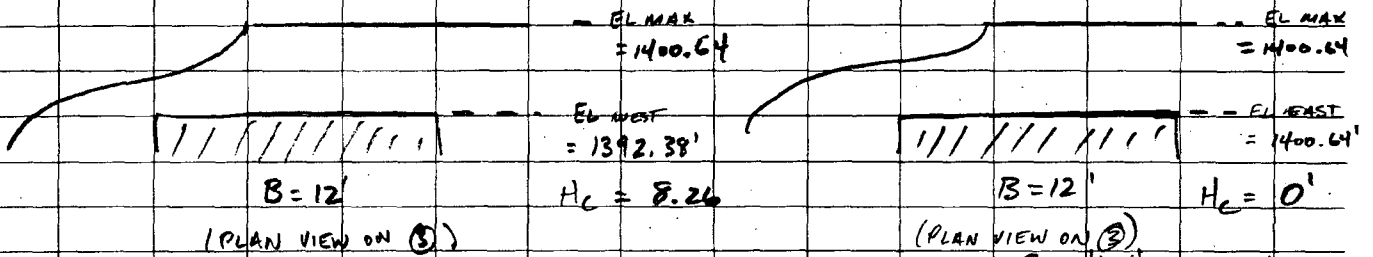 EL MAX
= 1400.64
EL WEST
= 1392.38'
B = 12'
Hc = 8.26
(PLAN VIEW ON ③)
EL MAX
= 1400.64
EL EAST
= 1400.64'
B = 12'
Hc = 0'
(PLAN VIEW ON ③)